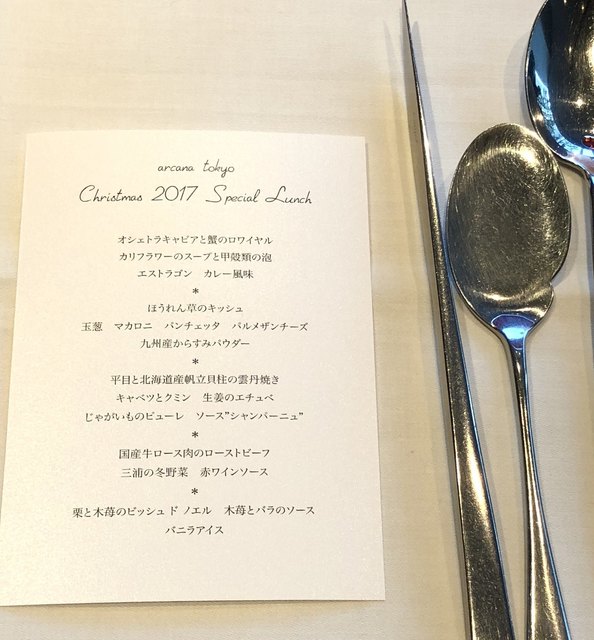 arcana tokyo
Christmas 2017 Special Lunch
オシェトラキャビアと蟹のロワイヤル
カリフラワーのスープと甲殻類の泡
エストラゴン　カレー風味
*
ほうれん草のキッシュ
玉葱　マカロニ　パンチェッタ　パルメザンチーズ
九州産からすみパウダー
*
平目と北海道産帆立貝柱の雲丹焼き
キャベツとクミン　生姜のエチュベ
じゃがいものピューレ　ソース”シャンパーニュ”
*
国産牛ロース肉のローストビーフ
三浦の冬野菜　赤ワインソース
*
栗と木苺のビッシュ ド ノエル　木苺とバラのソース
バニラアイス